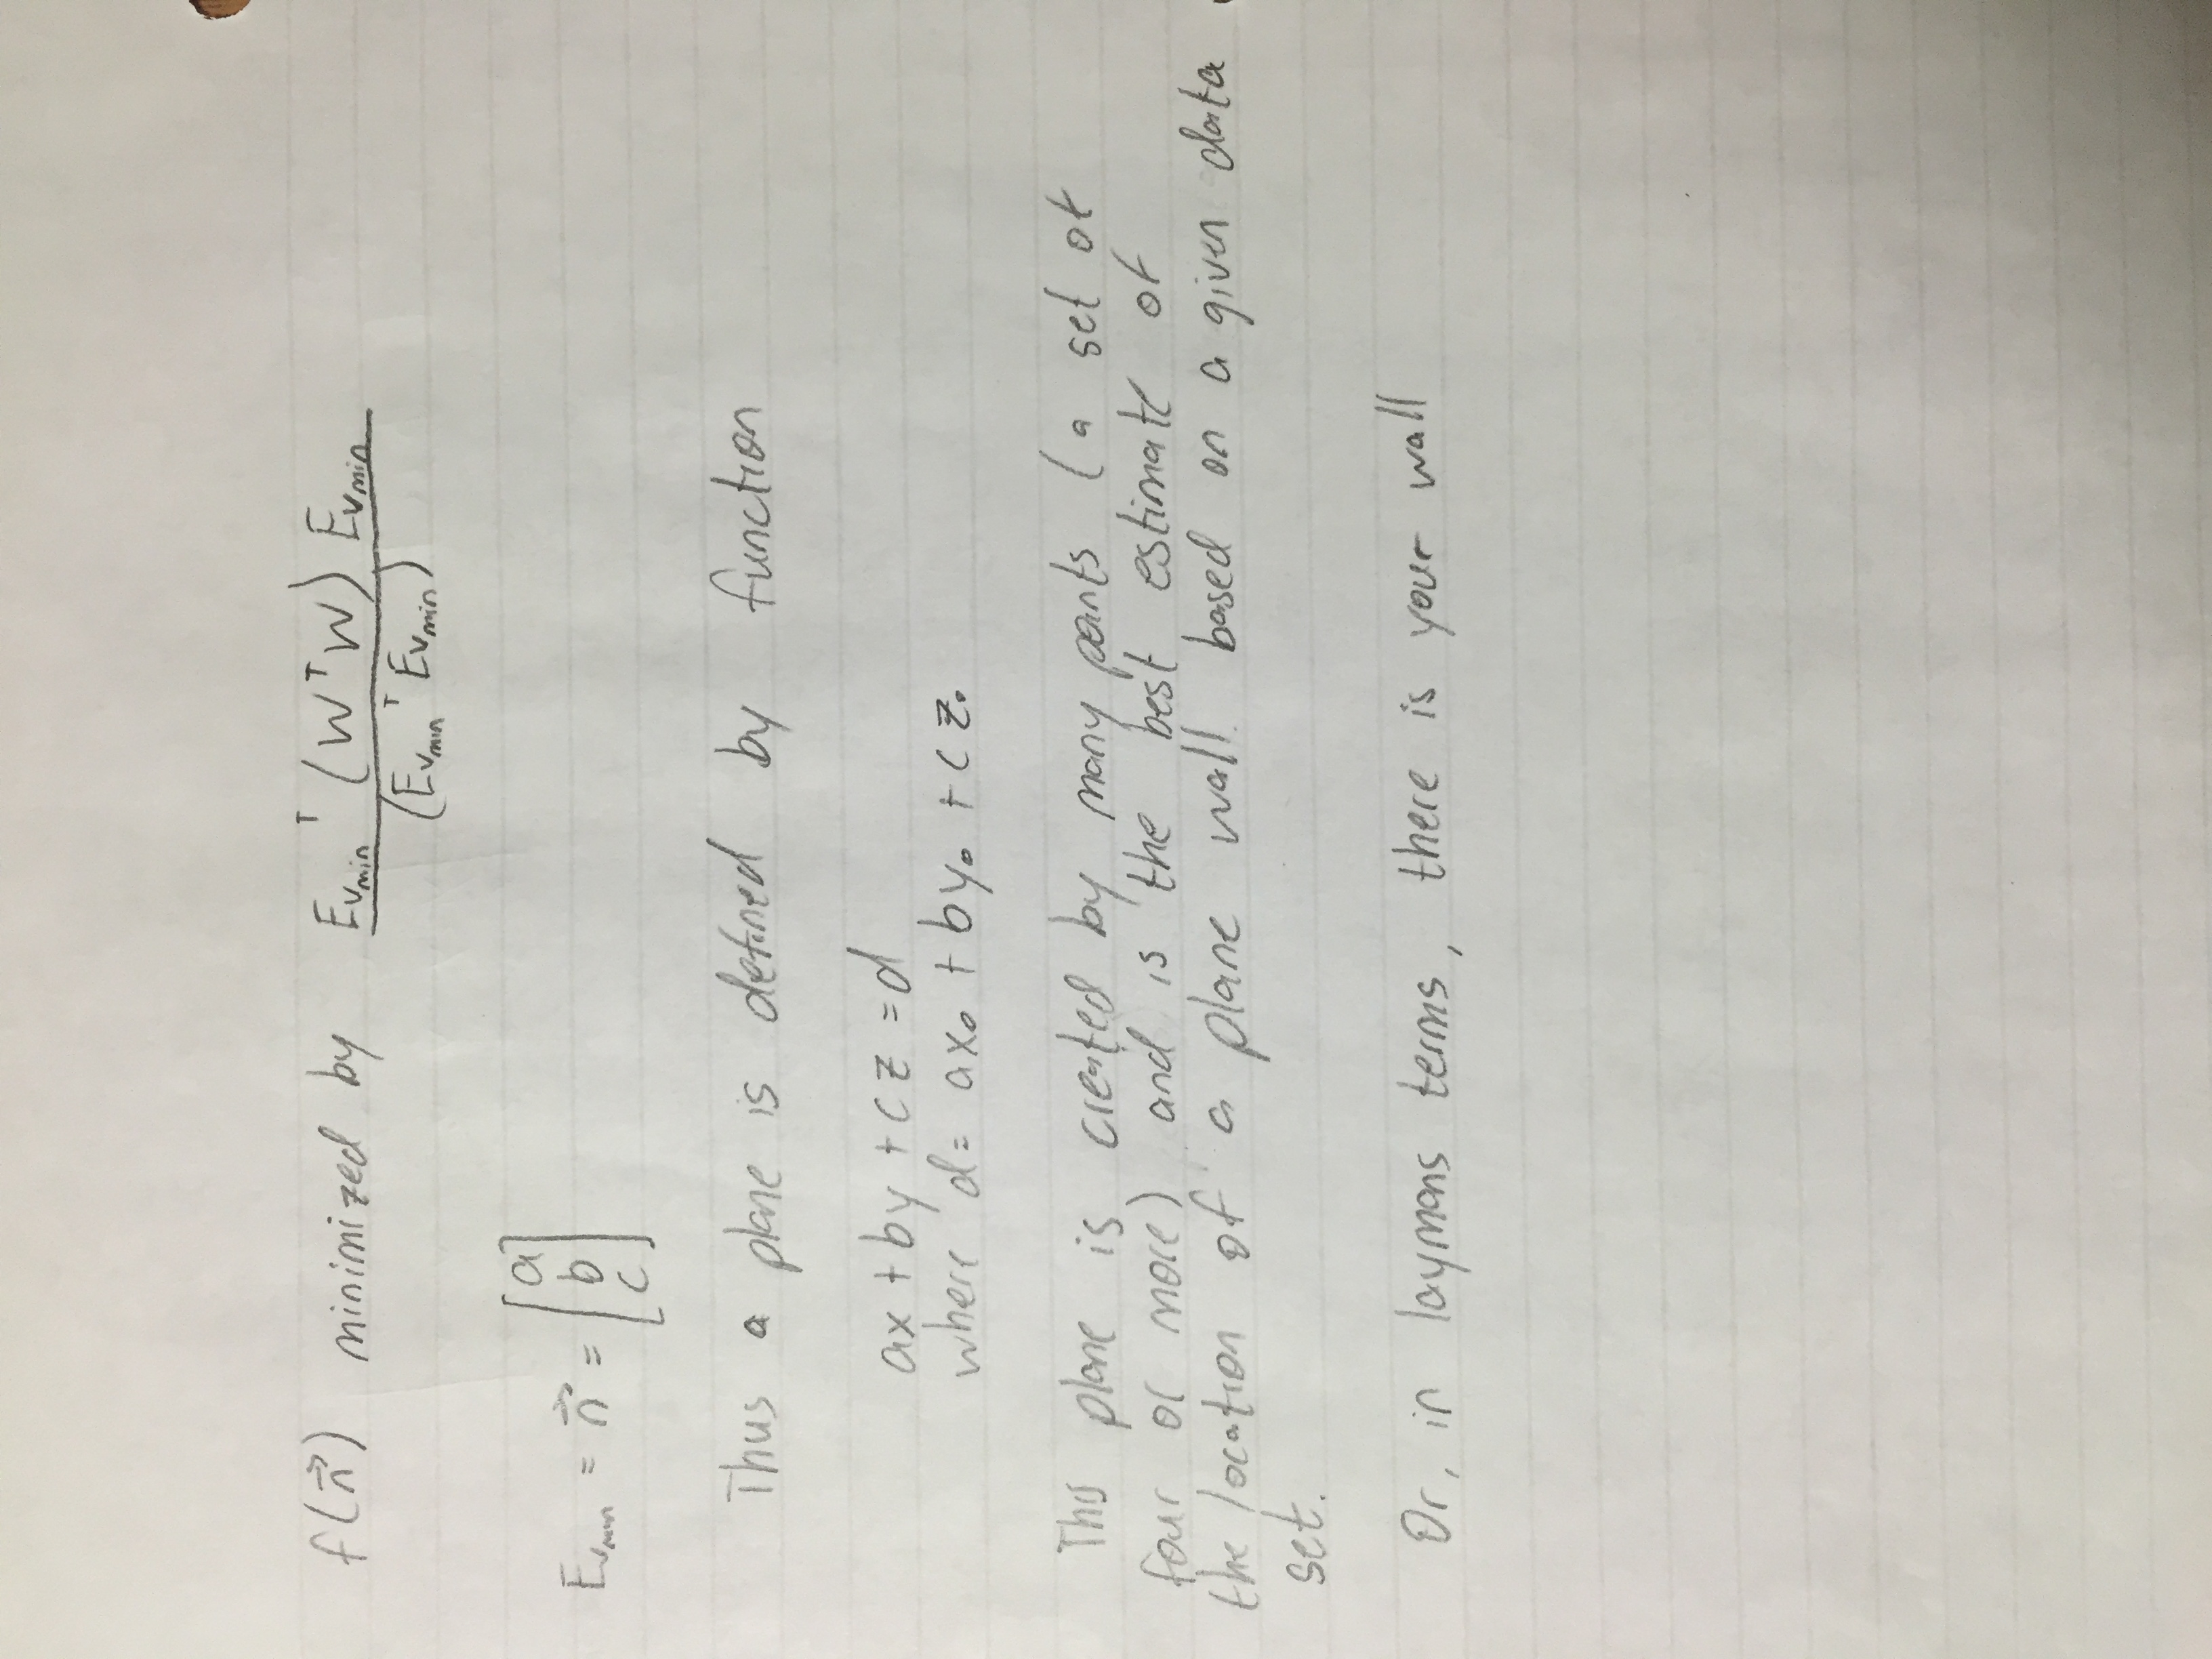 f(n⃗) minimized by Evmin^T (W^T W) Evmin / (Evmin^T Evmin)
Evmin = n⃗ = [a b c]
Thus a plane is defined by function
ax + by + cz = d
where d = ax₀ + by₀ + cz₀
This plane is created by many points (a set of
four or more) and is the best estimate of
the location of a plane wall based on a given data
set.
Or, in laymans terms, there is your wall